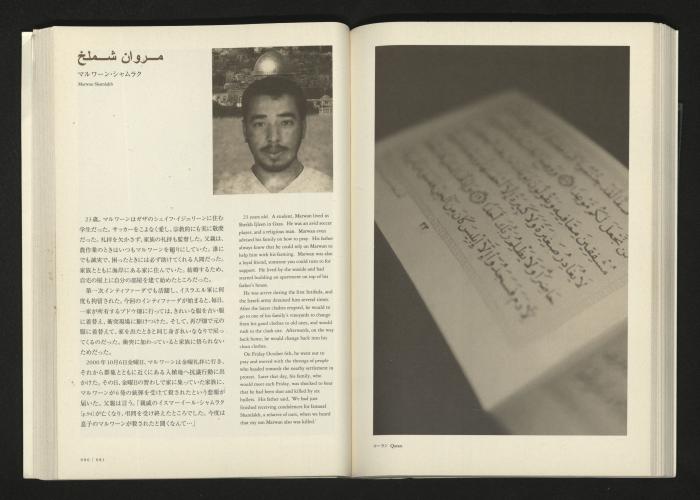 مروان شملخ
マルワーン・シャムラク
Marwan Shamlakh
23歳。マルワーンはガザのシェイフ・イジュリーンに住む
学生だった。サッカーをこよなく愛し、宗教的にも実に敬虔
だった。礼拝を欠かさず、家族の礼拝も監督した。父親は、
農作業のときはいつもマルワーンを頼りにしていた。誰に
でも誠実で、困ったときには必ず助けてくれる人間だった。
家族とともに海岸にある家に住んでいた。結婚するため、
自宅の屋上に自分の部屋を建て始めたところだった。
第一次インティファーダでも活躍し、イスラエル軍に何
度も拘留された。今回のインティファーダが始まると、毎日、
一家が所有するブドウ畑に行っては、きれいな服を古い服
に着替え、衝突現場に駆けつけた。そして、再び畑で元の
服に着替えて、家を出たときと同じ身ぎれいななりで帰っ
てくるのだった。衝突に加わっていると家族に悟られない
ためだった。
2000年10月6日金曜日、マルワーンは金曜礼拝に行き、
それから群集とともに近くにある入植地へ抗議行動に出
かけた。その日、金曜日の習わしで家に集っていた家族に、
マルワーンが6発の銃弾を受けて殺されたという悲報が
届いた。父親は言う。「親戚のイスマーイール・シャムラク
[p.94]が亡くなり、弔問を受け終えたところでした。今度は
息子のマルワーンが殺されたと聞くなんて…」
23 years old. A student, Marwan lived in
Sheikh Ijleen in Gaza. He was an avid soccer
player, and a religious man. Marwan even
advised his family on how to pray. His father
always knew that he could rely on Marwan to
help him with his farming. Marwan was also
a loyal friend, someone you could turn to for
support. He lived by the seaside and had
started building an apartment on top of his
father's house.
He was active during the first Intifada, and
the Israeli army detained him several times.
After the latest clashes erupted, he would to
go to one of his family's vineyards to change
from his good clothes to old ones, and would
rush to the clash site. Afterwards, on the way
back home, he would change back into his
clean clothes.
On Friday October 6th, he went out to
pray and moved with the throngs of people
who headed towards the nearby settlement to
protest. Later that day, his family, who
would meet each Friday, was shocked to hear
that he had been shot and killed by six
bullets. His father said, 'We had just
finished receiving condolences for Ismaeal
Shamlakh, a relative of ours, when we heard
that my son Marwan also was killed.'
090 | 091
コーラン Quran